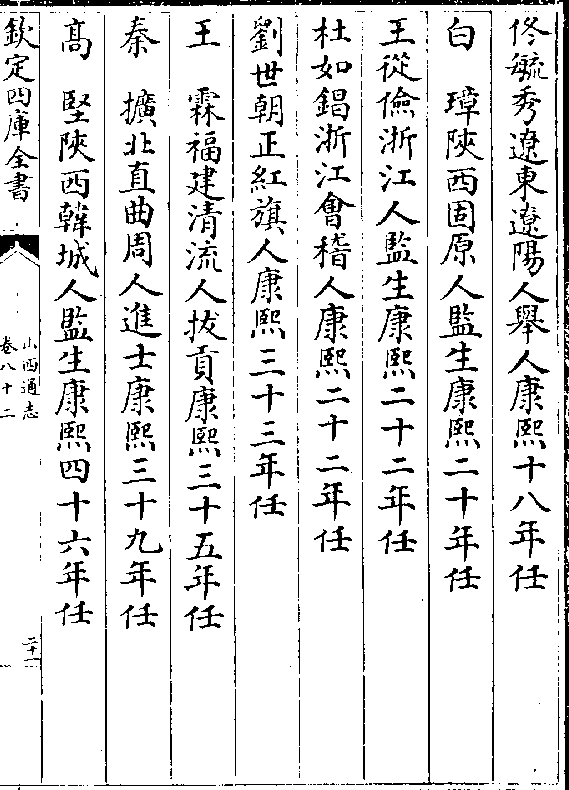 佟毓秀遼東遼陽人舉人康熙十八年任
白　璋陜西固原人監生康熙二十年任
王從儉浙江人監生康熙二十二年任
杜如錩浙江會稽人康熙二十二年任
劉世朝正紅旗人康熙三十三年任
王　霖福建清流人拔貢康熙三十五年任
秦　擴北直曲周人進士康熙三十九年任
高　堅陜西韓城人監生康熙四十六年任
欽定四庫全書
山西通志
卷八十二
二十一